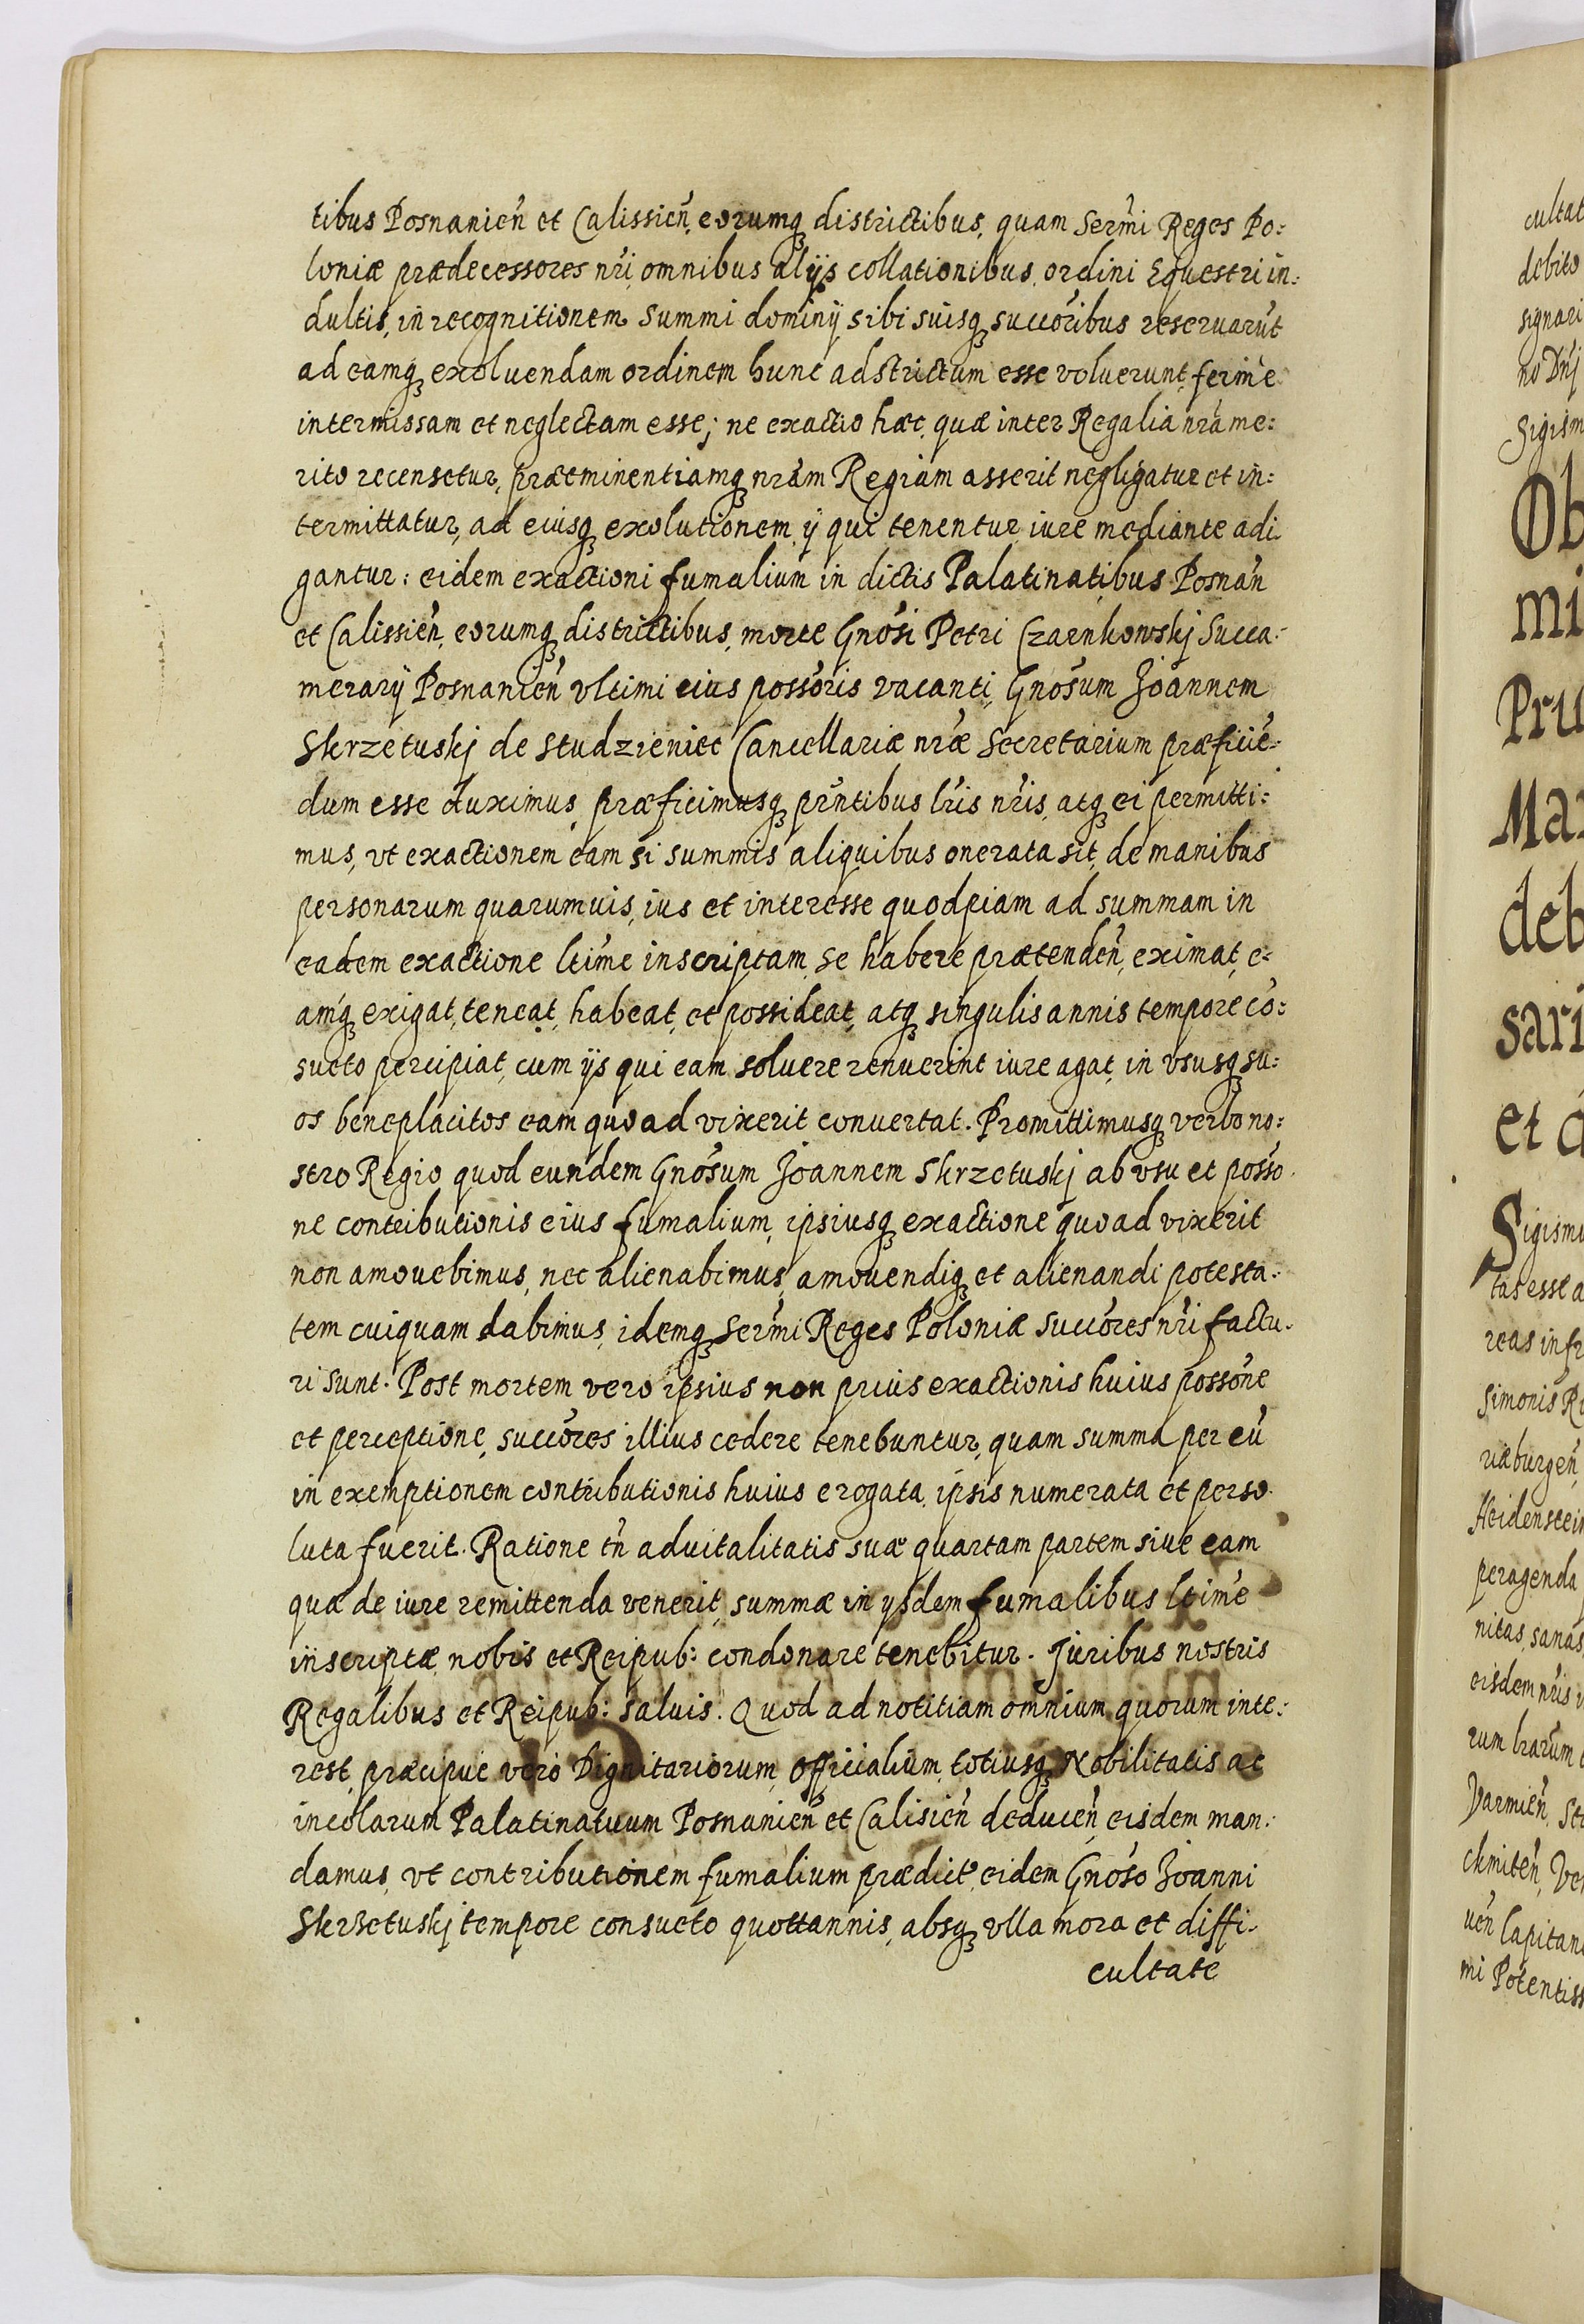 tibus Posnanien̄ et Calissien̄, eorumq́ districtibus, quam Serm̄i Reges Po:
loniæ prædecessores nr̄i omnibus alijs collationibus ordini Equestri in:
dultis, in recognitionem Summi dominij sibi suisq́ succōribus reseruarūt
ad eamq́ exoluendam ordinem hunc adstrictum esse voluerunt, ferme
intermissam et neglectam esse; ne exactio hæc, quæ inter Regalia nr̄a me:
rito recensetur, præeminentiamq́ nr̄am Regiam asserit negligatur et in:
termittatur, ad eiusq́ exolutionem ij qui tenentur iure mediante adi
gantur: eidem exactioni fumalium in dictis Palatinatibus Posnan̄
et Calissien̄, eorumq́ districtibus, morte Gnōsi Petri Czarnkowskj Succa:
merarij Posnanien̄ vltimi eius possōris vacanti, Gnōsum Joannem
Skrzetuskj de Studzieniec Cancellariæ nr̄æ Secretarium præficiē:
dum esse duximus, præficimusq́ pr̄ntibus lr̄is nr̄is, atq́ ei permitti:
mus, vt exactionem eam si summis aliquibus onerata sit, de manibus
personarum quarumuis, ius et interesse quodpiam ad summam in
eadem exactione ltime inscriptam se habere prætenden̄, eximat, e:
amq́ exigat, teneat, habeat, et possideat, atq́ singulis annis tempore cō:
sueto percipiat, cum ijs qui eam soluere renuerint iure agat, in vsusq́ su:
os beneplacitos eam quoad vixerit conuertat. Promittimusq́ verbo no:
stro Regio quod eundem Gnōsum Joannem Skrzetuskj ab vsu et possō
ne contributionis eius fumalium, ipsiusq́ exactione quoad vixerit
non amouebimus, nec alienabimus, amouendiq́ et alienandi potesta:
tem cuiquam dabimus, idemq́ Serm̄i Reges Poloniæ succōres nr̄i factu:
ri sunt. Post mortem vero ipsius non prius exactionis huius possōne
et perceptione, succōres illius cedere tenebuntur, quam summa per eū
in exemptionem contributionis huius erogata, ipsis numerata et perso
luta fuerit. Ratione tn̄ aduitalitatis suæ quartam partem siue eam
quæ de iure remittenda venerit, summæ in ijsdem fumalibus ltime
inscriptæ nobis et Reipub: condonare tenebitur. Juribus nostris
Regalibus et Reipub: saluis. Quod ad notitiam omnium quorum inte:
rest, præcipue vero Dignitariorum, Officialium, totiusq́ Nobilitatis ac
incolarum Palatinatuum Posnanien̄ et Calisien̄ deducen̄, eisdem man:
damus, vt contributionem fumalium prædict, eidem Gnōso Joanni
Skrzetuskj tempore consueto quottannis, absq́ vlla mora et diffi:
cultate
cultat
debito
signari
no Dn̄j
Sigism
Ob
mi
Pru
Mar
deb
sari
et
Sigismu
tas esse a
reas infr
Simonis R
riæburgen̄
Heidenstein
peragenda
nitas, sanas
eisdem nr̄is
rum lr̄arum
Varmien̄, St
ckmiten̄, Ve
uen̄ Capitan
mi Potentiss